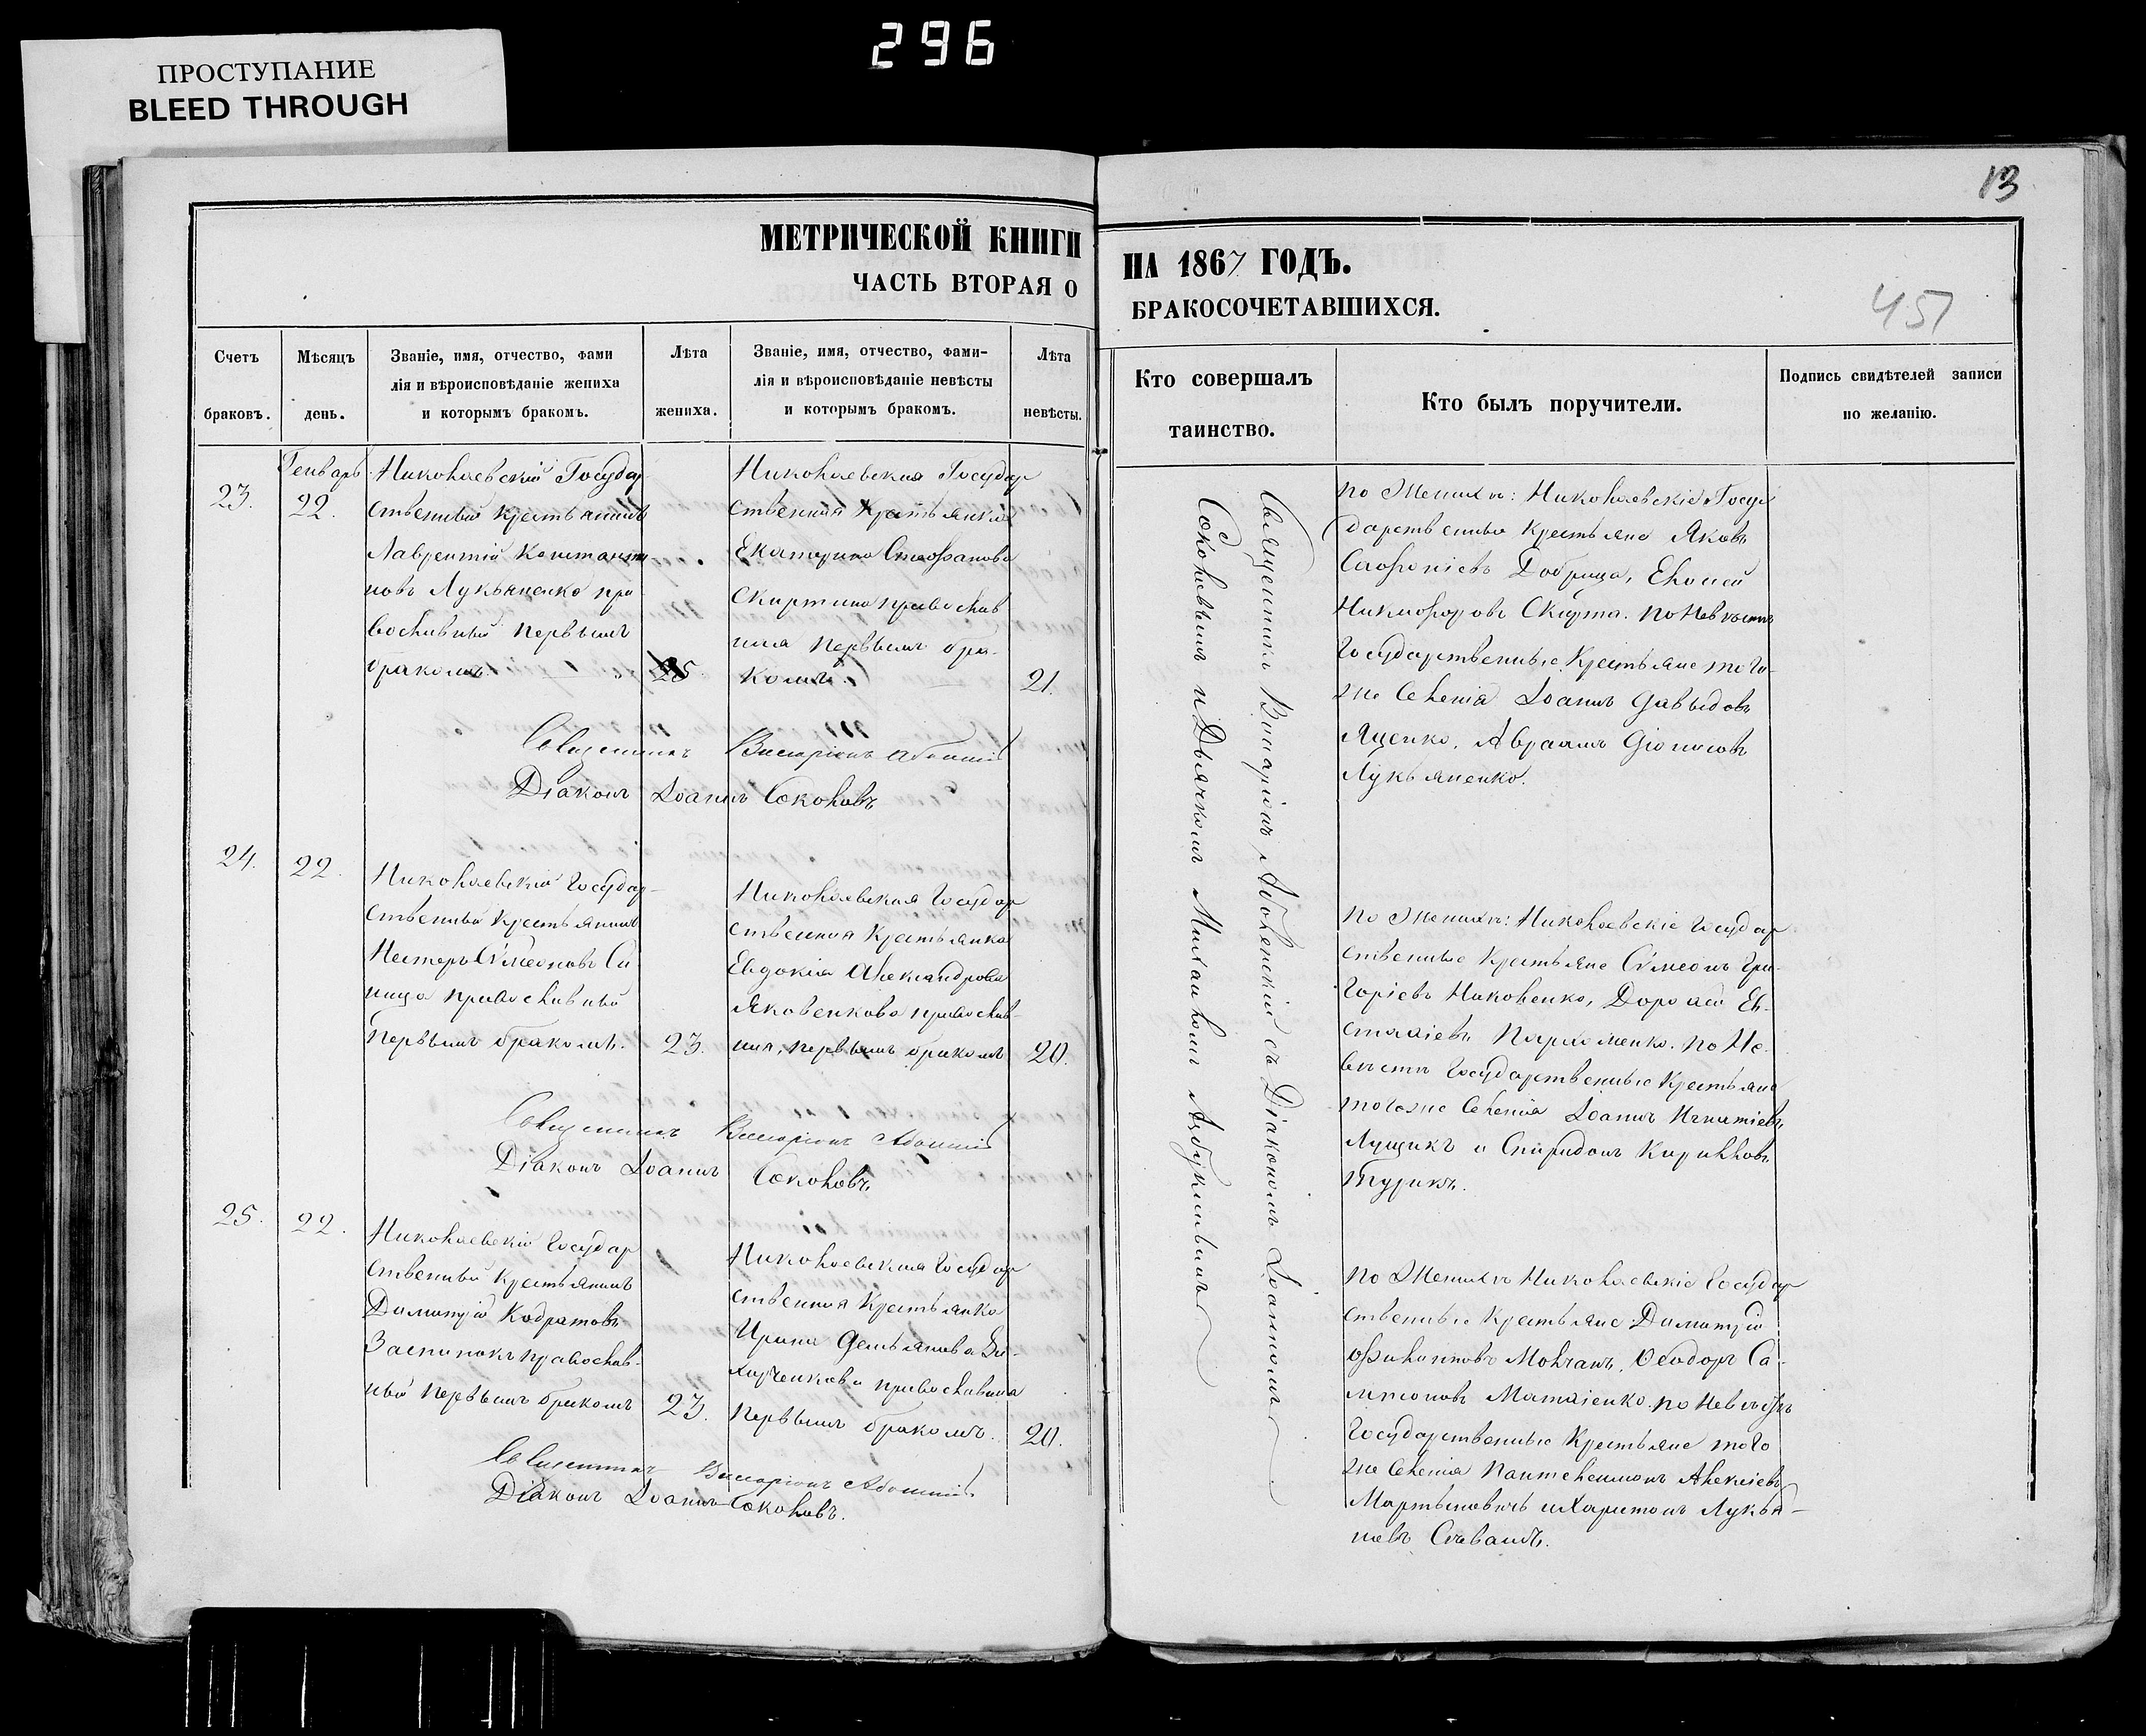 296
ПРОСТУПАНИЕ
BLEED THROUGH
13
МЕТРИЧЕСКОЙ КНИГИ
НА 1867 ГОДЪ.
ЧАСТЬ ВТОРАЯ О
БРАКОСОЧЕТАВШИХСЯ.
457
Счетъ
браковъ.
Мѣсяцъ
день.
Званіе, имя, отчество, фами
лія и вѣроисповѣданіе жениха
и которымъ бракомъ.
Лѣта
жениха.
Званіе, имя, отчество, фами-
лія и вѣроисповѣданіе невѣсты
и которымъ бракомъ.
Лѣта
невѣсты.
Кто совершалъ
таинство.
Кто былъ поручители.
Подпись свидѣтелей записи
по желанію.
23.
Генварь
22.
Николаевскій Государ
ственный Крестьянинъ
Лаврентій Константи-
новъ Лукьяненко пра
вославный первымъ
бракомъ.
25.
Николаевская Государ
ственная Крестьянка
Екатерина Стефанова
Скиртина православ
ная первымъ бра-
комъ.
21.
Священникъ Виссаріонъ
Діаконъ Іоаннъ Соколовъ
Священникъ Виссаріонъ Аболенскій съ Діакономъ Іоанномъ
Соколовымъ и Дьячкомъ Михаиломъ Азбукинымъ
по Женихѣ: Николаевскіе Госу
дарственные Крестьяне Яковъ
Сафоніевъ Добрица, Елисей
Никифоровъ Скирта. по Невѣстѣ
Государственные Крестьяне того-
же Селенія Іоаннъ Давыдовъ
Яценко, Авраамъ Діонисовъ
Лукьяненко.
24.
22.
Николаевскій Государ-
ственный Крестьянинъ
Несторъ Сѵмеоновъ Си
ница православный
первымъ бракомъ.
23.
Николаевская Государ
ственная Крестьянка
Евдокія Александрова
Яковенкова православ-
ная, первымъ бракомъ
20.
Священникъ Виссаріонъ
Діаконъ Іоаннъ Соколовъ
по Женихѣ: Николаевскіе Государ
ственные Крестьяне Сѵмеонъ Гри-
горіевъ Яковенко, Дороѳей Ев-
стаѳіевъ Пархоменко. по Не-
вѣстѣ Государственные Крестьяне
тогоже Селенія Іоаннъ Игнатіевъ
Лущикъ и Спиридонъ Кирилловъ
Турикъ.
25.
22.
Николаевскій Государ
ственный Крестьянинъ
Димитрій Кодратовъ
Заспинокъ православ-
ный первымъ бракомъ
23.
Николаевская Государ
ственная Крестьянка
Ирина Демьянова
православная
первымъ бракомъ.
20.
Священникъ Виссаріонъ
Діаконъ Іоаннъ Соколовъ.
по Женихѣ Николаевскіе Государ
ственные Крестьяне: Димитрій
Филипповъ Молчанъ, Ѳеодоръ Са-
мпсоновъ Матѳіенко. по Невѣстѣ
Государственные Крестьяне того
же Селенія Пантелеимонъ Алексіевъ
Мартыновичъ и Харитонъ Лукья-
новъ